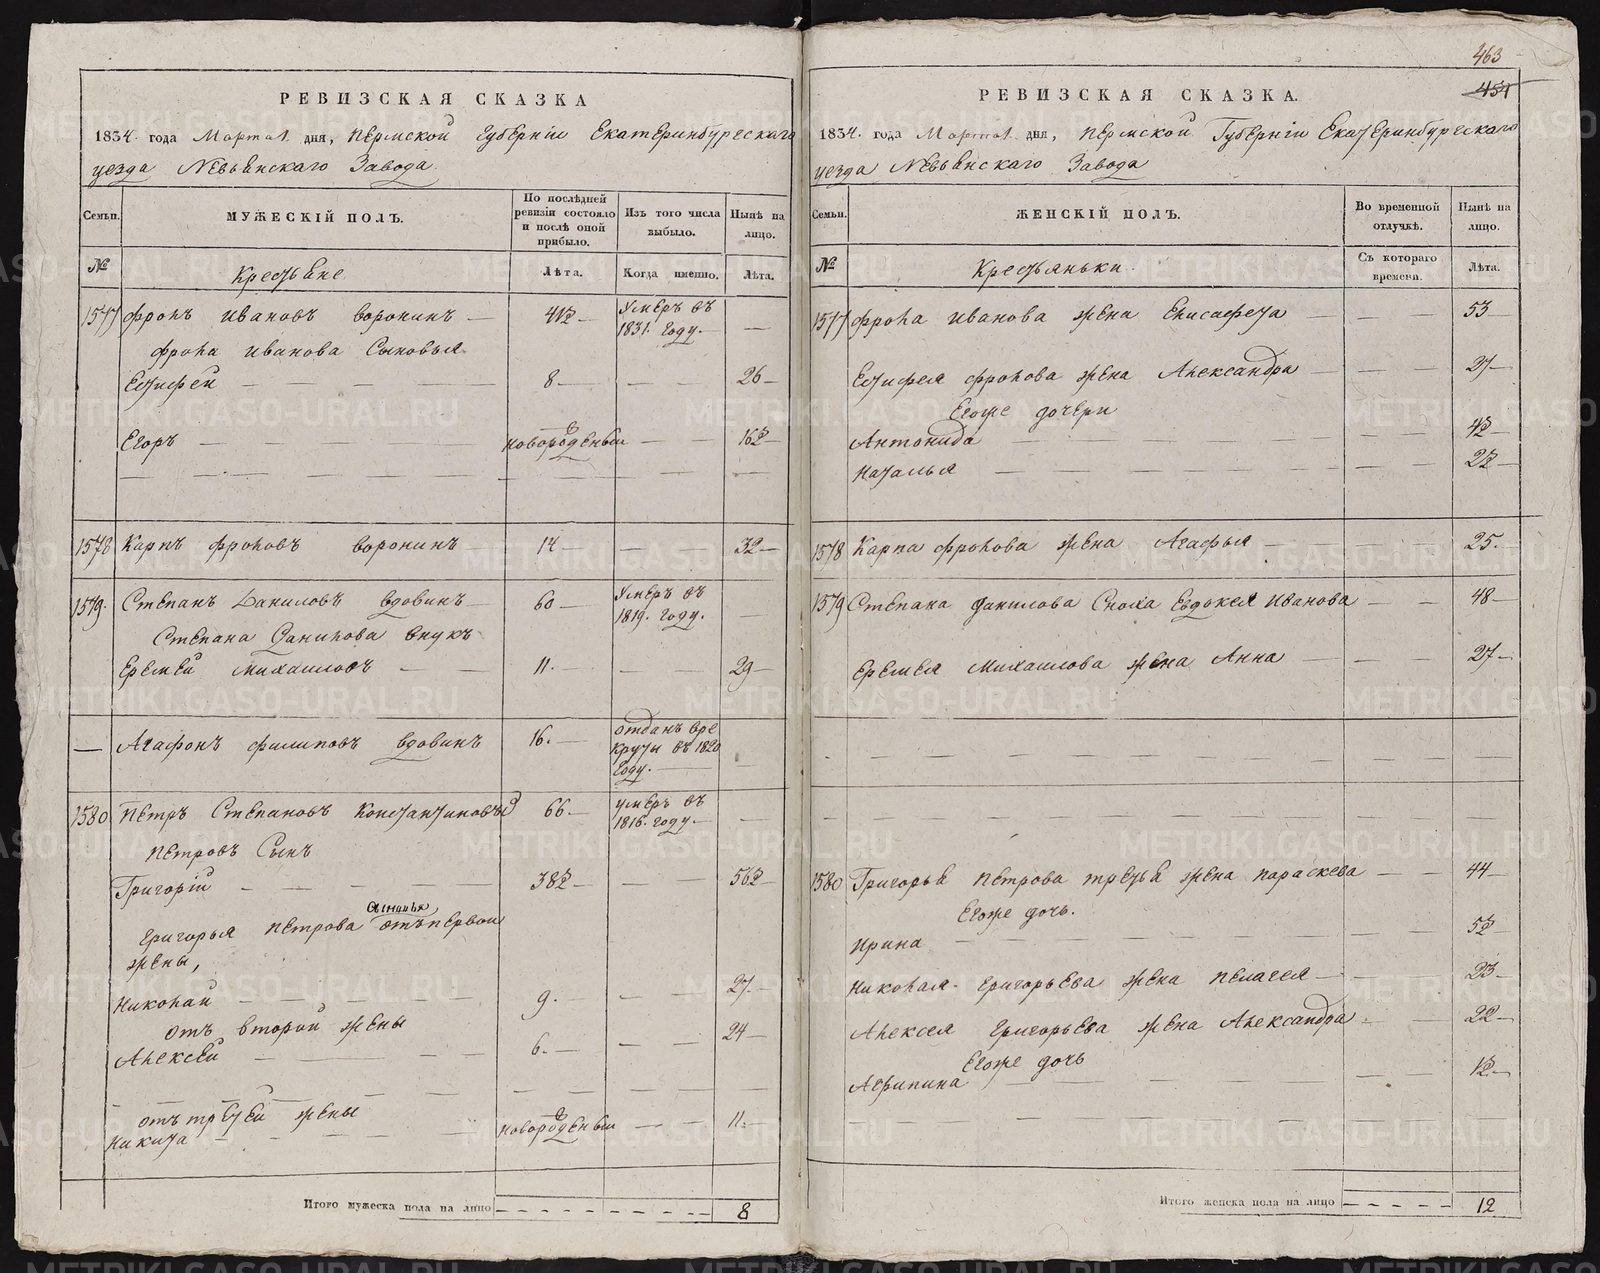 463
454
РЕВИЗСКАЯ СКАЗКА
1834. года Марта 1. дня, Пермской Губернiи Екатеринбургскаго
уезда Невьянскаго Завода.
Семьи.
МУЖЕСКIЙ ПОЛЪ.
По послѣдней ревизiи состояло и послѣ оной прибыло.
Изъ того числа выбыло.
Нынѣ на лицо.
№
Крестьяне
Лѣта.
Когда именно.
Лѣта.
1577 Фролъ Ивановъ Воронинъ — 41½ — Умеръ въ 1831. году. —
Фрола Иванова Сыновья
Евтифей — 8 — — 26 —
Егоръ — новорожденный — — 16½ —
1578 Карпъ Фроловъ Воронинъ 14 — — 32 —
1579. Степанъ Даниловъ Вдовинъ — 60 — Умеръ въ 1819. году. —
Степана Данилова внукъ
Еремей Михаиловъ — 11. — — 29 —
— Агафонъ Филиповъ Вдовинъ 16. — отданъ в рекруты въ 1820 году. —
1580 Петръ Степановъ Константиновыхъ 66. — умеръ въ 1816. году. —
Петровъ Сынъ
Григорiй — 38½ — — 56½ —
Григорья Петрова Сыновья отъ первой
жены,
Николай — 9. — — 27. —
отъ второй жены
Алексей — 6. — — 24 —
отъ третьей жены
Никита — новорожденный — — 11.
Итого мужеска пола на лицо 8
РЕВИЗСКАЯ СКАЗКА.
1834. года Марта 1. дня, Пермской Губернiи Екатеринбургскаго
уезда Невьянскаго Завода
Семьи.
ЖЕНСКIЙ ПОЛЪ.
Во временной отлучкѣ.
Нынѣ на лицо.
№
Крестьяньки.
Съ котораго времени.
Лѣта.
1577 Фрола Иванова жена Елисафета — — 53 —
Евтифея Фролова жена Александра — — 27 —
Егоже дочери
Антонида — 4½ —
Наталья — 2½ —
1578 Карпа Фролова жена Агафья — — 25. —
1579 Степана Данилова Сноха Евдокея Иванова — — 48 —
Еремея Михаилова жена Анна — — 27 —
1580 Григорья Петрова третья жена Параскева — — 44 —
Егоже дочь.
Ирина — 5½ —
Николая Григорьева жена Пелагея — — 23 —
Алексея Григорьева жена Александра — — 22 —
Егоже дочь
Агрипина — 1½ —
Итого женска пола на лицо 12
METRIKI.GASO-URAL.RU